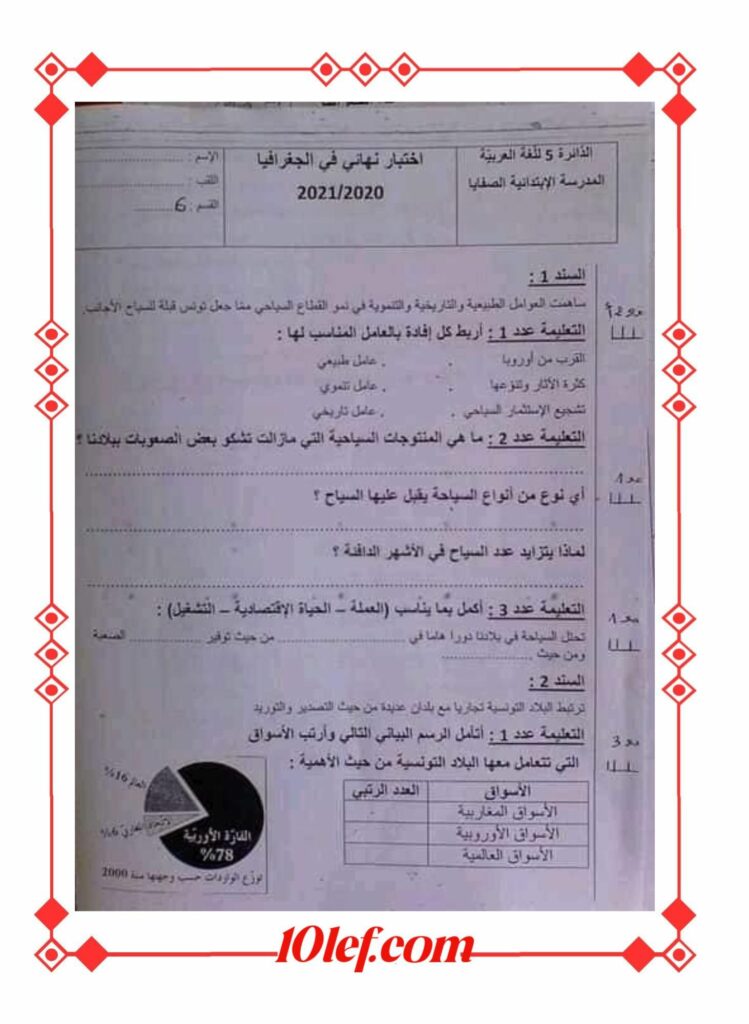 الدائرة 5 للغة العربية
المدرسة الإبتدائية الصفايا
اختبار نهائي في الجغرافيا
2021/2020
الإسم : ....................
اللقب : ....................
القسم : 6 ..........
السند 1 :
ساهمت العوامل الطبيعية والتاريخية والتنموية في نمو القطاع السياحي ممّا جعل تونس قبلة للسياح الأجانب.
مع 2أ
التعليمة عدد 1 : أربط كل إفادة بالعامل المناسب لها :
القرب من أوروبا . . عامل طبيعي
كثرة الآثار وتنوّعها . . عامل تنموي
تشجيع الإستثمار السياحي . . عامل تاريخي
التعليمة عدد 2 : ما هي المنتوجات السياحية التي مازالت تشكو بعض الصعوبات ببلادنا ؟
مع 1
أي نوع من أنواع السياحة يقبل عليها السياح ؟
لماذا يتزايد عدد السياح في الأشهر الدافئة ؟
التعليمة عدد 3 : أكمل بما يناسب (العملة – الحياة الإقتصادية – التشغيل) :
مع 1
تحتل السياحة في بلادنا دورا هاما في .................... من حيث توفير ............ الصعبة
ومن حيث ..............
السند 2 :
ترتبط البلاد التونسية تجاريا مع بلدان عديدة من حيث التصدير والتوريد
التعليمة عدد 1 : أتأمل الرسم البياني التالي وأرتب الأسواق
مع 3
التي تتعامل معها البلاد التونسية من حيث الأهمية :
الأسواق العدد الرتبي
الأسواق المغاربية
الأسواق الأوروبية
الأسواق العالمية
العالم 16%
6%
القارة الأوربية
78%
توزّع الواردات حسب وجهتها سنة 2000
10lef.com